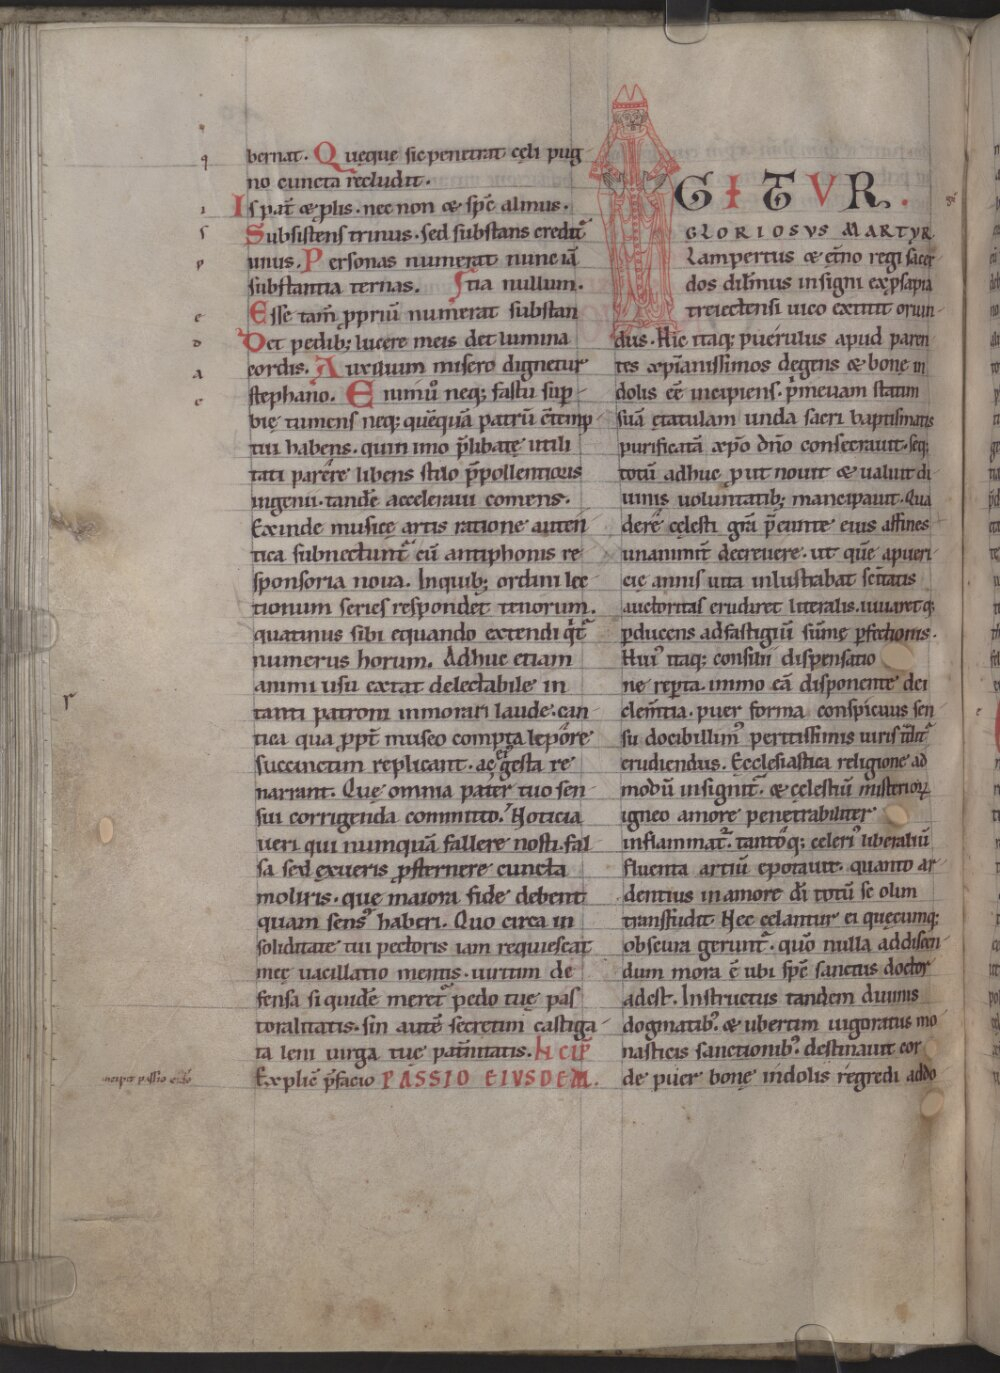 bernat. Queque sic penetrat cęli pug
no cuncta recludit.
Is pat̄ & plis. nec non & sp̄c almus.
Subsistens trinus. sed substans credit᷑
unus. Personas numerat nunc iā
substantia ternas. Ꞇtia nullum.
Esse tam̄ ꝓpriū numerat substan
Det pedib; lucere meis det lumina
cordis. Auxilium misero dignetur
stephano. Enimū neq; fastu sup̄
bię tumens neq; quęquā patrū c̄temp
tui habens. quin imo p̄libatę utili
tati parere libens stilo p̄pollentioris
ingenii. tandē acceleraui comens.
Exinde musicę artis ratione auten
tica subnectunt᷑ cū antiphonis re
sponsoria noua. In quib; ordini lec
tionum series respondet tenorum.
quatinus sibi equando extendi q̄t᷑
numerus horum. Adhuc etiam
animi usu extat delectabile in
tanti patroni inmorari laude. can
tica qua ꝓpt̄ museo compta lepore
succinctim replicant. ac & gesta re
narrant. Quę omnia pater tuo sen
sui corrigenda committo. Noticia
ueri qui numquā fallere nosti. fal
sa sed exueris ꝓsternere cuncta
moliris. que maiori fide debent
quam sens᷒ haberi. Quo circa in
soliditate tui pectoris iam requiescat
meę uacillatio mentis. uirtim de
fensa si quidē meret᷑ pedo tuę pas
toralitatis. sin autē secretim castiga
ta leni uirga tuę pat̄nitatis. INCIP̄
Explic̄ p̄facio PASSIO EIVSDEM.
incipit passio eiusdē
q
i
s
p
e
d
a
e
r
IGITVR.
GLORIOSVS MARTYR
Lampertus & et̄no regi sacer
dos dil̄mus insigni ex ꝓsapia
treiectensi uico extitit oriun
dus. Hic itaq; puerulus apud paren
tes xp̄ianissimos degens & bone in
dolis eē incipiens. p̄meuam statim
suā etatulam unda sacri baptismatis
purificatā xp̄o dn̄o consecrauit. seq;
totū adhuc ꝓut nouit & ualuit di
uinis uoluntatib; mancipauit. Qua
dere cęlesti gr̄a p̄eunte eius affines
unanimit̄ decreuere. ut quē apueri
cię annis uita inlustrabat sc̄itatis
auctoritas erudiret literalis. iuuaretq;
ꝓducens ad fastigiū sūmę ꝑfectionis.
Hui᷒ itaq; consilii dispensatio
ne reꝑta. immo eā disponente dei
clem̄tia. puer forma conspicuus sen
su docibillim᷒ peritissimis uiris
erudiendus. Ecclesiastica religione ad
modū insignit᷑. & cęlestiū misterioꝝ
igneo amore penetrabiliter
inflammat᷑. tantoq; celeri᷒ liberaliū
fluenta artiū epotauit. quanto ar
dentius in amore dī totū se olim
transfudit. Nec celantur ei quęcumq;
obscura gerunt᷑. quō nulla addiscen
dum mora ē ubi sp̄c sanctus doctor
adest. Instructus tandem diuinis
dogmatib᷒. & ubertim uigoratus mo
nasticis sanctionib᷒. destinauit cor
de puer bonę indolis regredi addo